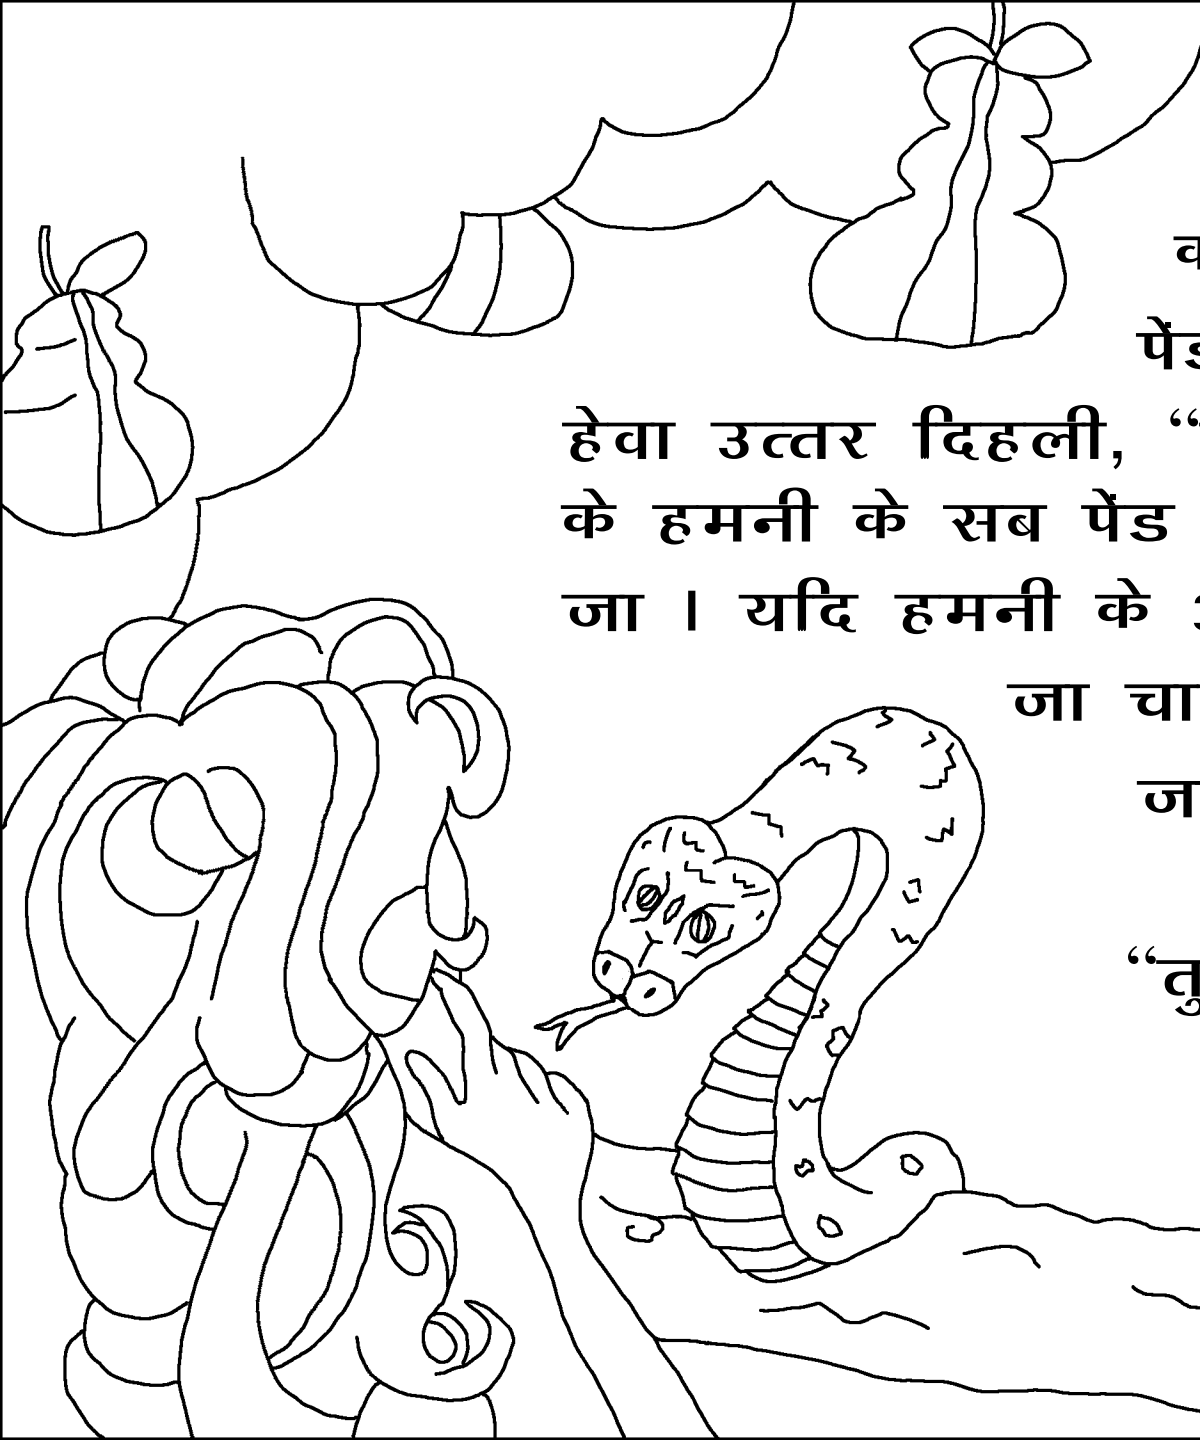 हेवा उत्तर दिहली, “
के हमनी के सब पेंड
जा । यदि हमनी के
जा चा
“तु